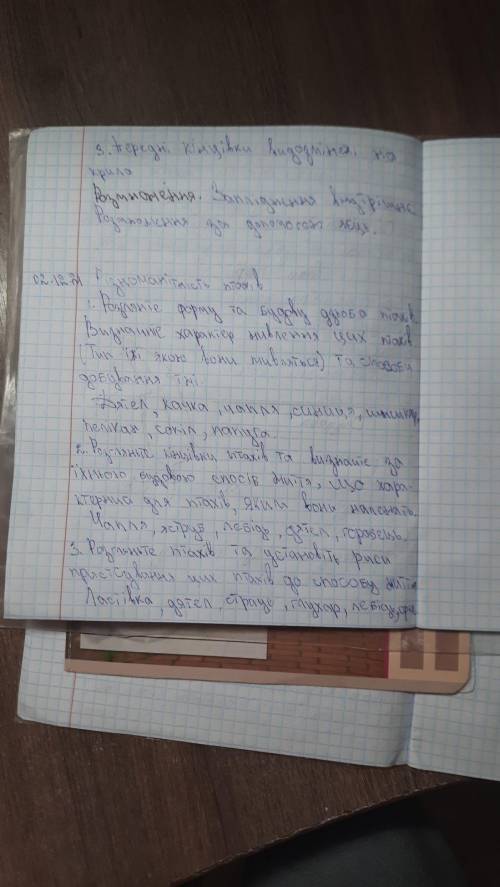 3. Передні кінцівки видозміне. на
крила
Розмноження. Запліднення внутрішнє.
Розмноження за допомогою яйця.
02.12.21 Різноманітність птахів
1. Розгляньте форму та будову дзьоба птахів.
Визначте характер живлення цих птахів
(Тип їжі якою вони живляться) та способи
добування їжі.
Дятел, качка, чапля, синиця,
пелікан, сокіл, папуга.
2. Розгляньте кінцівки птахів та визначте за
їхньою будовою спосіб життя, що хара-
ктерний для птахів, яким вони належать.
Чапля, яструб, лебідь, дятел, горобець.
3. Розгляньте птахів та установіть риси
пристосування цих птахів до способу життя
Ластівка, дятел, страус, глухар, лебідь,